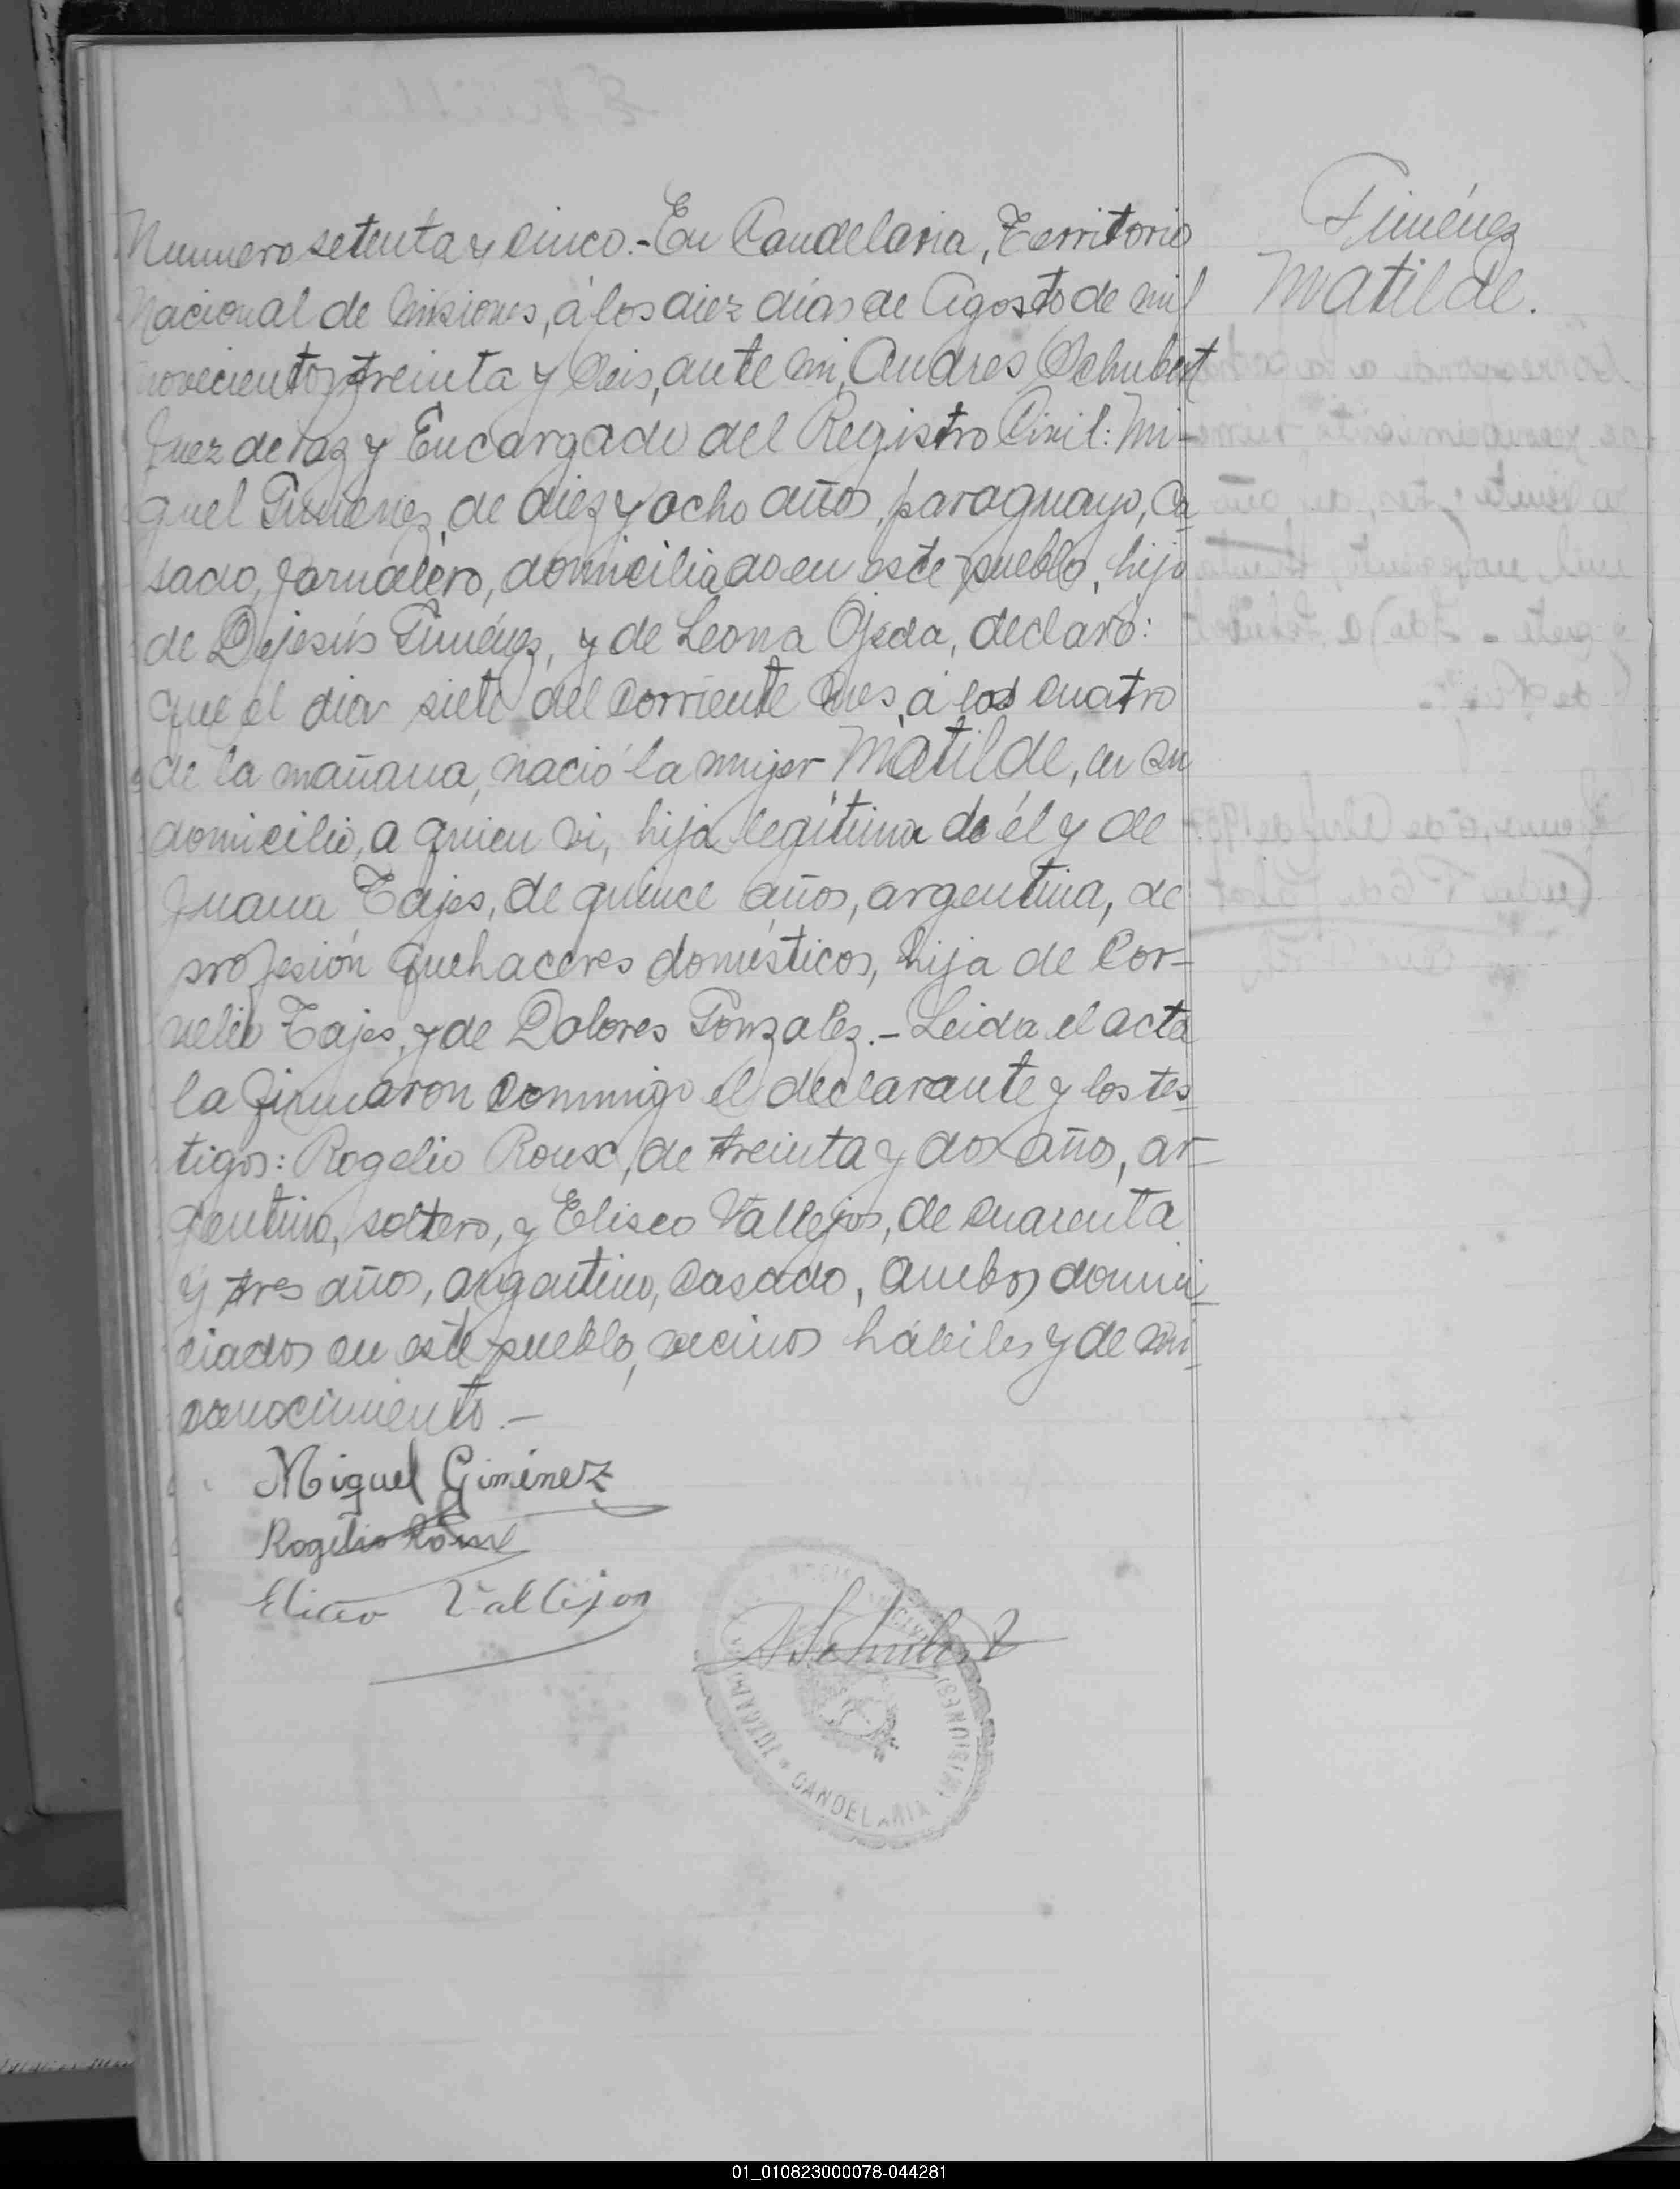 Giménez
Matilde.
Numero setenta y cinco.- En Candelaria, Territorio
Nacional de Misiones, á los diez días de Agosto de mil
novecientos treinta y seis, ante mi, Andres Schubert
Juez de Paz y Encargado del Registro Civil: Mi-
guel Giménez, de diez y ocho años, paraguayo, ca-
sado, jornalero, domiciliado en este pueblo, hijo
de Dejesús Giménez, y de Leona Ojeda, declaró:
que el dia siete del corriente mes, á las cuatro
de la mañana, nació la mujer Matilde, en su
domicilio, a quien vi, hija legítima de él y de
Juana Tajes, de quince años, argentina, de
profesión quehaceres domésticos, hija de Cor-
nelio Tajes, y de Dolores Gonzalez.- Leida el acta
la firmaron conmigo el declarante y los tes-
tigos: Rogelio Roux, de treinta y dos años, ar-
gentino, soltero, y Eliseo Vallejos, de cuarenta
y tres años, argentino, casado, ambos domici-
ciados en este pueblo, vecinos hábiles y de mi
conocimiento.-
Miguel Giménez
Rogelio Roux
Eliseo Vallejos
ASchubert
CANDELARIA (MISIONES)
01_010823000078-044281